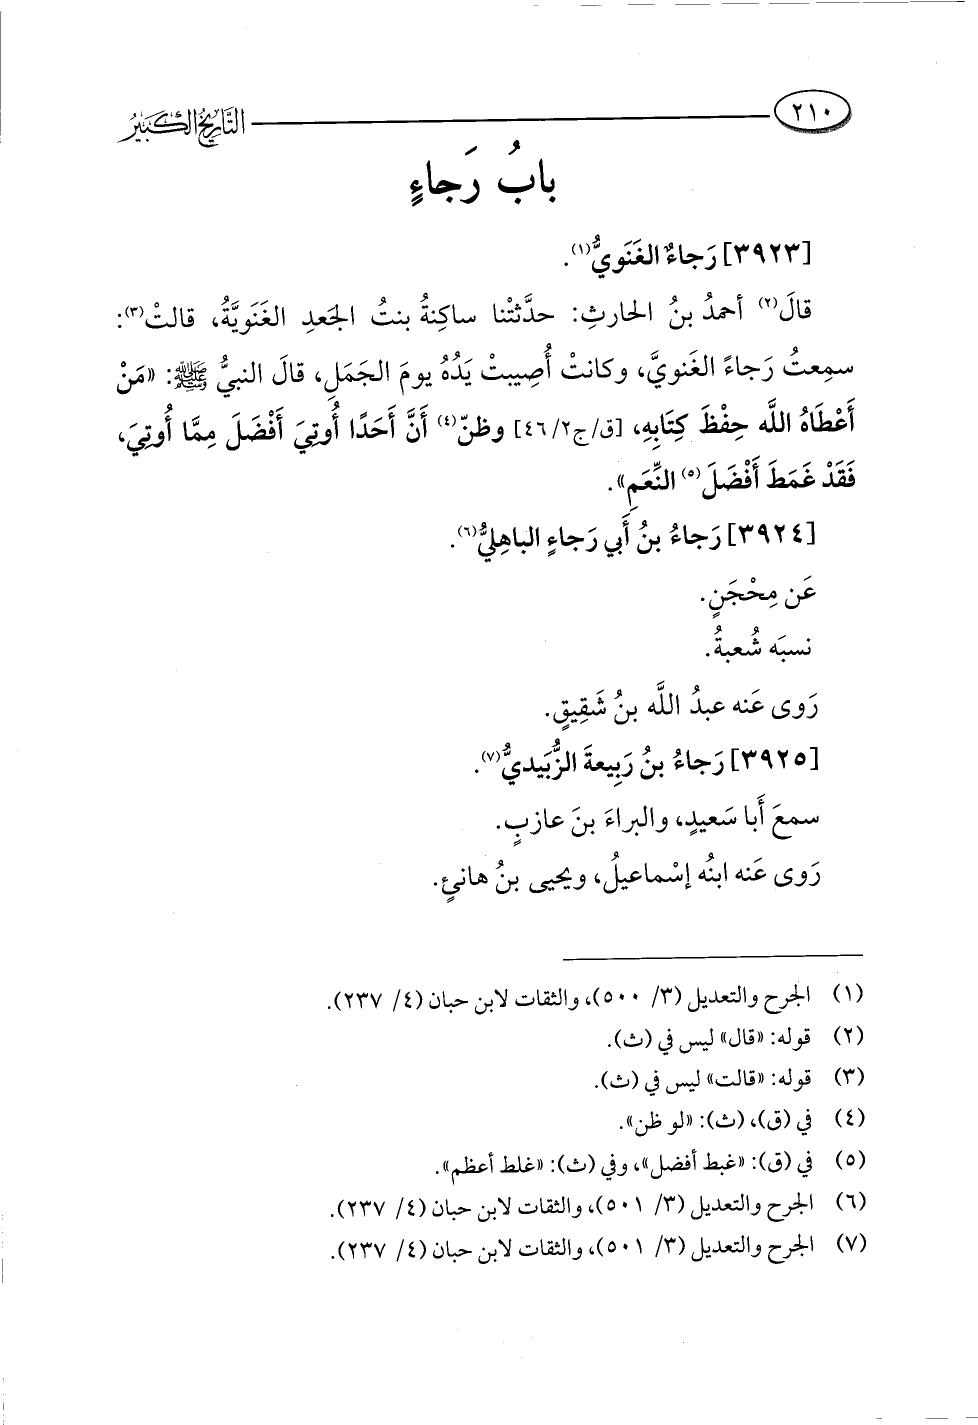 ٢١٠
التَّارِيخُ الكَبِيرُ
بابُ رَجاءٍ
[٣٩٢٣] رَجاءٌ الغَنَوِيُّ(١).
قالَ(٢) أحمدُ بنُ الحارثِ: حدَّثتْنا ساكِنةُ بنتُ الجَعدِ الغَنَوِيَّةُ، قالتْ(٣):
سمِعتُ رَجاءً الغَنويَّ، وكانتْ أُصِيبتْ يَدُهُ يومَ الجَمَلِ، قال النبيُّ ﷺ: «مَنْ
أَعْطَاهُ اللَّه حِفْظَ كِتَابِهِ، [ق/ج٢/ ٤٦] وظنّ(٤) أَنَّ أَحَدًا أُوتِيَ أَفْضَلَ مِمَّا أُوتِيَ،
فَقَدْ غَمَطَ أَفْضَلَ(٥) النِّعَمِ».
[٣٩٢٤] رَجاءُ بنُ أَبي رَجاءٍ الباهِليُّ(٦).
عَن مِحْجَنٍ.
نسبَه شُعبةُ.
رَوى عَنه عبدُ اللَّه بنُ شَقِيقٍ.
[٣٩٢٥] رَجاءُ بنُ رَبِيعةَ الزُّبَيديُّ(٧).
سمعَ أَبا سَعيدٍ، والبراءَ بنَ عازبٍ.
رَوى عَنه ابنُه إسْماعيلُ، ويحيى بنُ هانئٍ.
(١) الجرح والتعديل (٣/ ٥٠٠)، والثقات لابن حبان (٤/ ٢٣٧).
(٢) قوله: «قال» ليس في (ث).
(٣) قوله: «قالت» ليس في (ث).
(٤) في (ق)، (ث): «لو ظن».
(٥) في (ق): «غبط أفضل»، وفي (ث): «غلط أعظم».
(٦) الجرح والتعديل (٣/ ٥٠١)، والثقات لابن حبان (٤/ ٢٣٧).
(٧) الجرح والتعديل (٣/ ٥٠١)، والثقات لابن حبان (٤/ ٢٣٧).